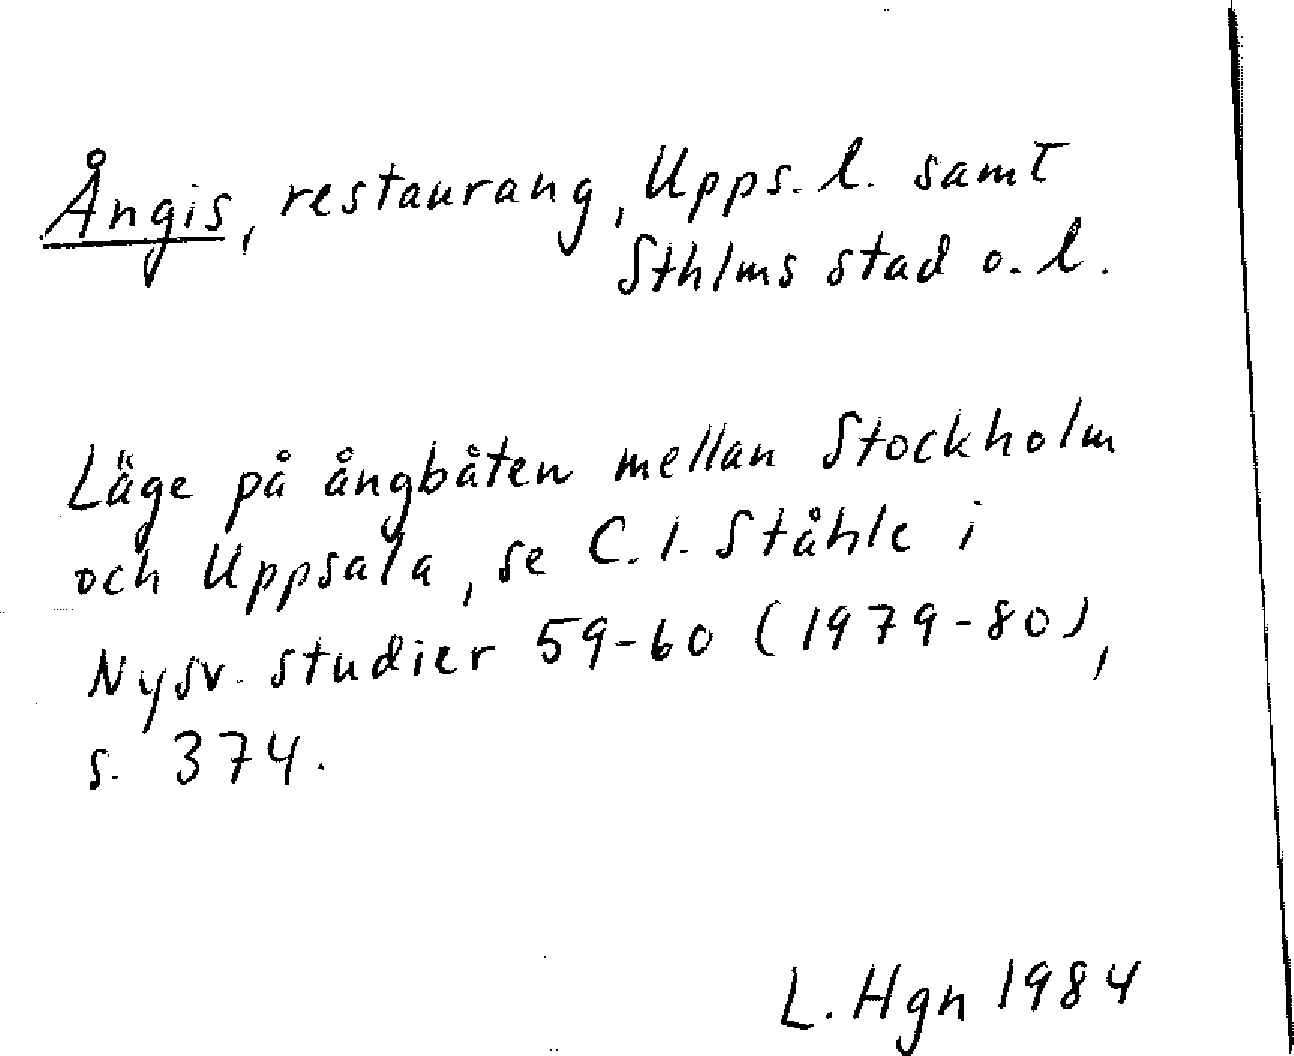 Ångis, restaurang, Upps. l. samt
Sthlms stad o. l.
Läge på ångbåten mellan Stockholm
och Uppsala, se C. I. Ståhle i
Nysv. studier 59-60 (1979-80),
s. 374.
L. Hgn 1984